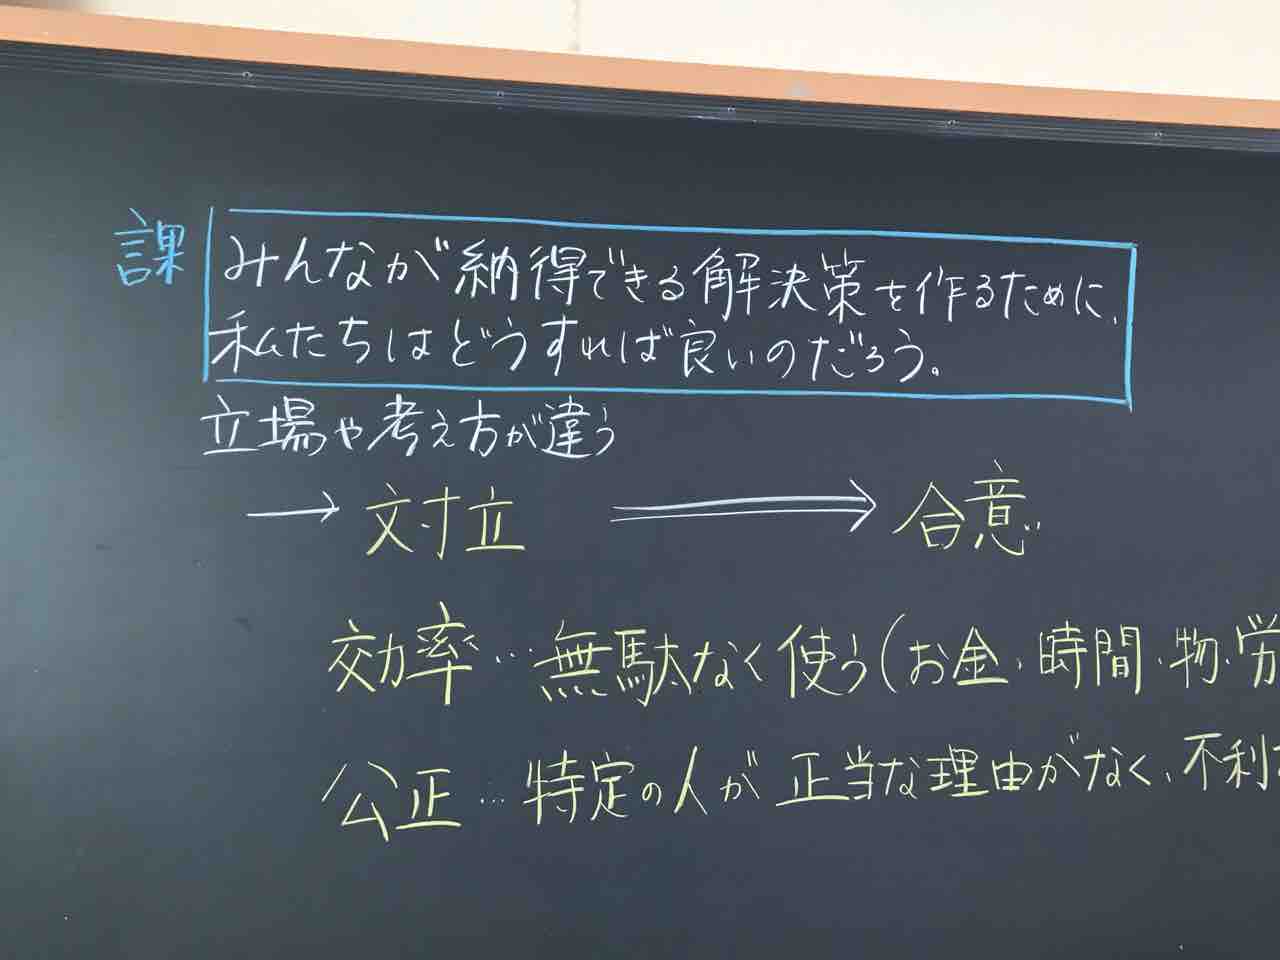 課 みんなが納得できる解決策を作るために、
私たちはどうすれば良いのだろう。
立場や考え方が違う
→ 対立 ⟹ 合意
効率…無駄なく使う(お金・時間・物・労
公正…特定の人が正当な理由がなく、不利